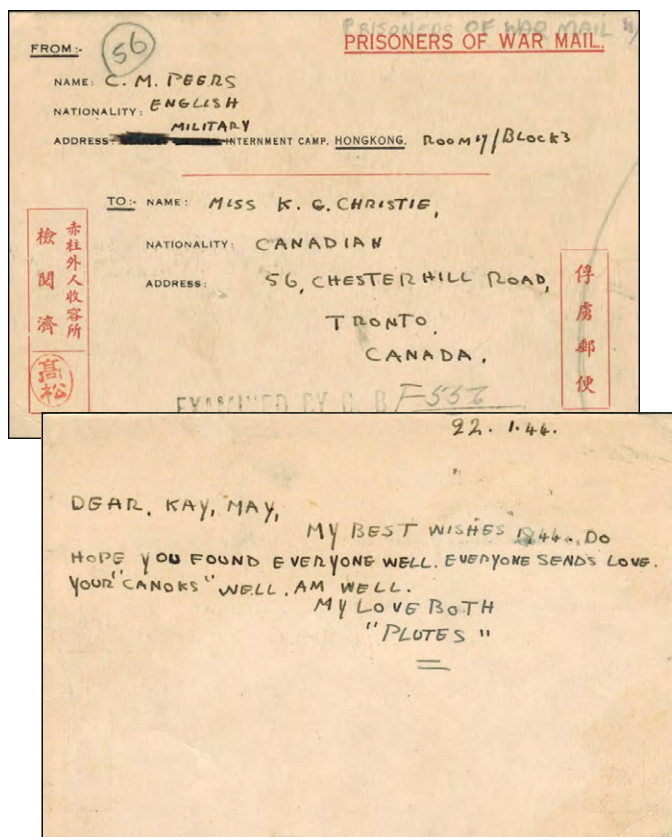 PRISONERS OF WAR MAIL
FROM:- 56 PRISONERS OF WAR MAIL.
NAME: C. M. PEERS
NATIONALITY: ENGLISH
MILITARY
ADDRESS: INTERNMENT CAMP, HONGKONG. ROOM 17/BLOCK 3
TO:- NAME: MISS K. G. CHRISTIE,
NATIONALITY: CANADIAN
ADDRESS: 56, CHESTERHILL ROAD,
TRONTO,
CANADA.
赤柱外人收容所
檢閲濟
髙松
俘虜郵便
EXAMINED BY D. B F-556
22. 1. 44.
DEAR, KAY, MAY,
MY BEST WISHES 1944.. DO
HOPE YOU FOUND EVERYONE WELL. EVERYONE SENDS LOVE.
YOUR "CANOKS" WELL. AM WELL.
MY LOVE BOTH
"PLUTES"